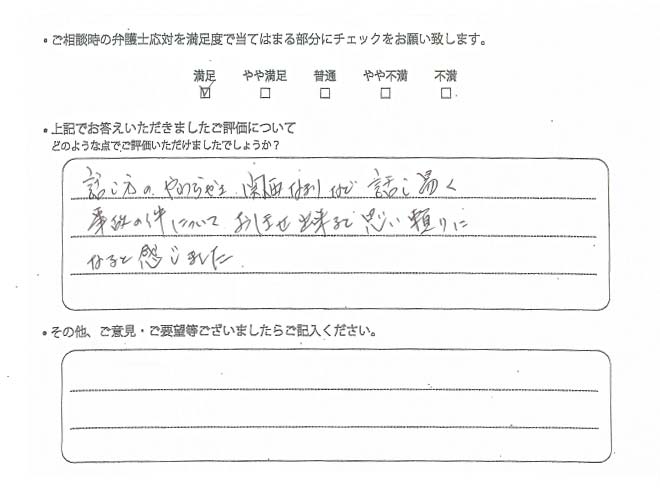 ・ご相談時の弁護士応対を満足度で当てはまる部分にチェックをお願い致します。
満足 やや満足 普通 やや不満 不満
☑ □ □ □ □
・上記でお答えいただきましたご評価について
どのような点でご評価いただけましたでしょうか？
話し方の やわらかさ 関西なまりなど 話し易く
事故の件について おまかせ出来ると思い 頼りに
なると感じました
・その他、ご意見・ご要望等ございましたらご記入ください。